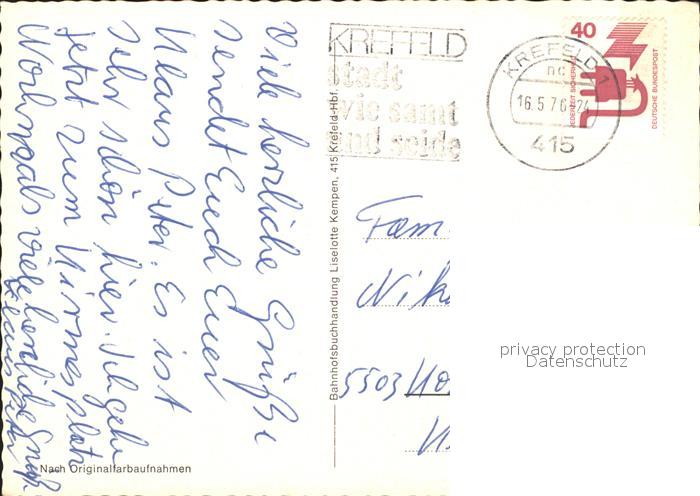 Viele herzliche Grüße
sendet Euch Euer
Klaus Peter. Es ist
sehr schön hier. Ich gehe
jetzt zum Kirmesplatz
Nochmals viele herzliche Grüße
Klaus Peter
Nach Originalfarbaufnahmen
Bahnhofsbuchhandlung Liselotte Kempen, 415 Krefeld-Hbf.
KREFELD
stadt
wie samt
und seide
KREFELD 1
nc
16.5.76-24
415
40
JEDERZEIT SICHERHEIT
DEUTSCHE BUNDESPOST
Fam.
Nik
5503
privacy protection
Datenschutz